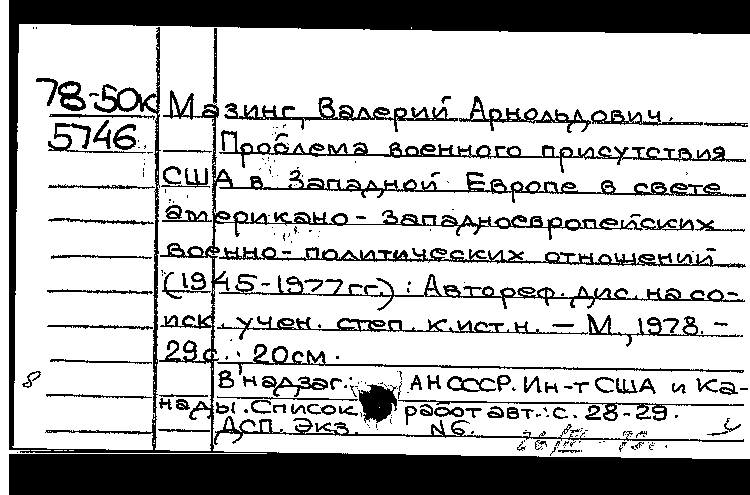 78-50к Мазинг, Валерий Арнольдович.
5746 Проблема военного присутствия
США в Западной Европе в свете
американо-западноевропейских
военно-политических отношений
(1945-1977гг.): Автореф. дис. на со-
иск. учен. степ. к.ист.н. – М., 1978. –
29с.; 20см.
8 В надзаг.: АН СССР. Ин-т США и Ка-
нады. Список работ авт.: с. 28-29.
ДСП. Экз. N6.